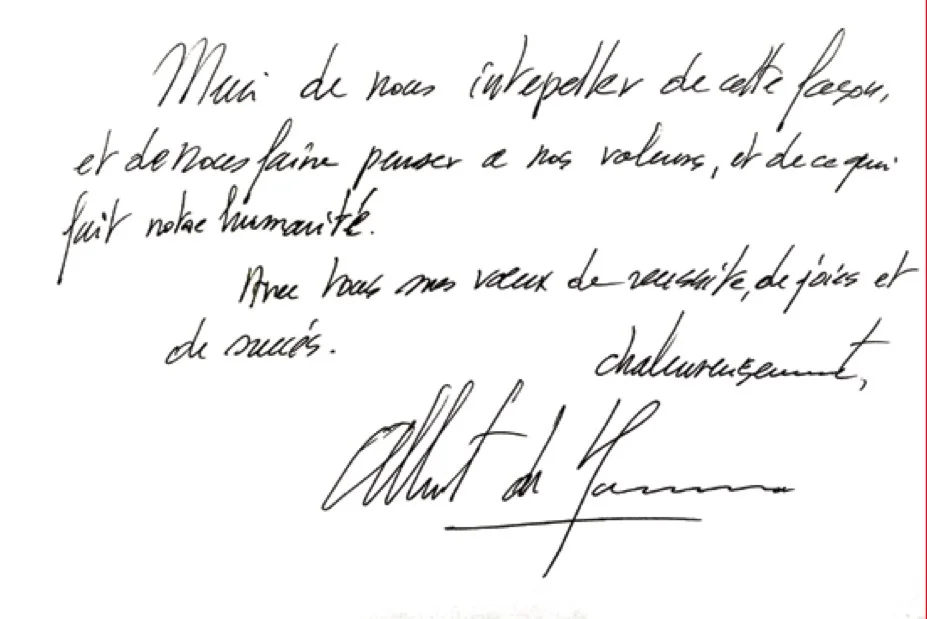 Merci de nous intepeller de cette façon,
et de nous faire penser a nos valeurs, et de ce qui
fait notre humanité.
Avec tous mes vœux de reussite, de joies et
de succés.
chaleureusement,
Albert de